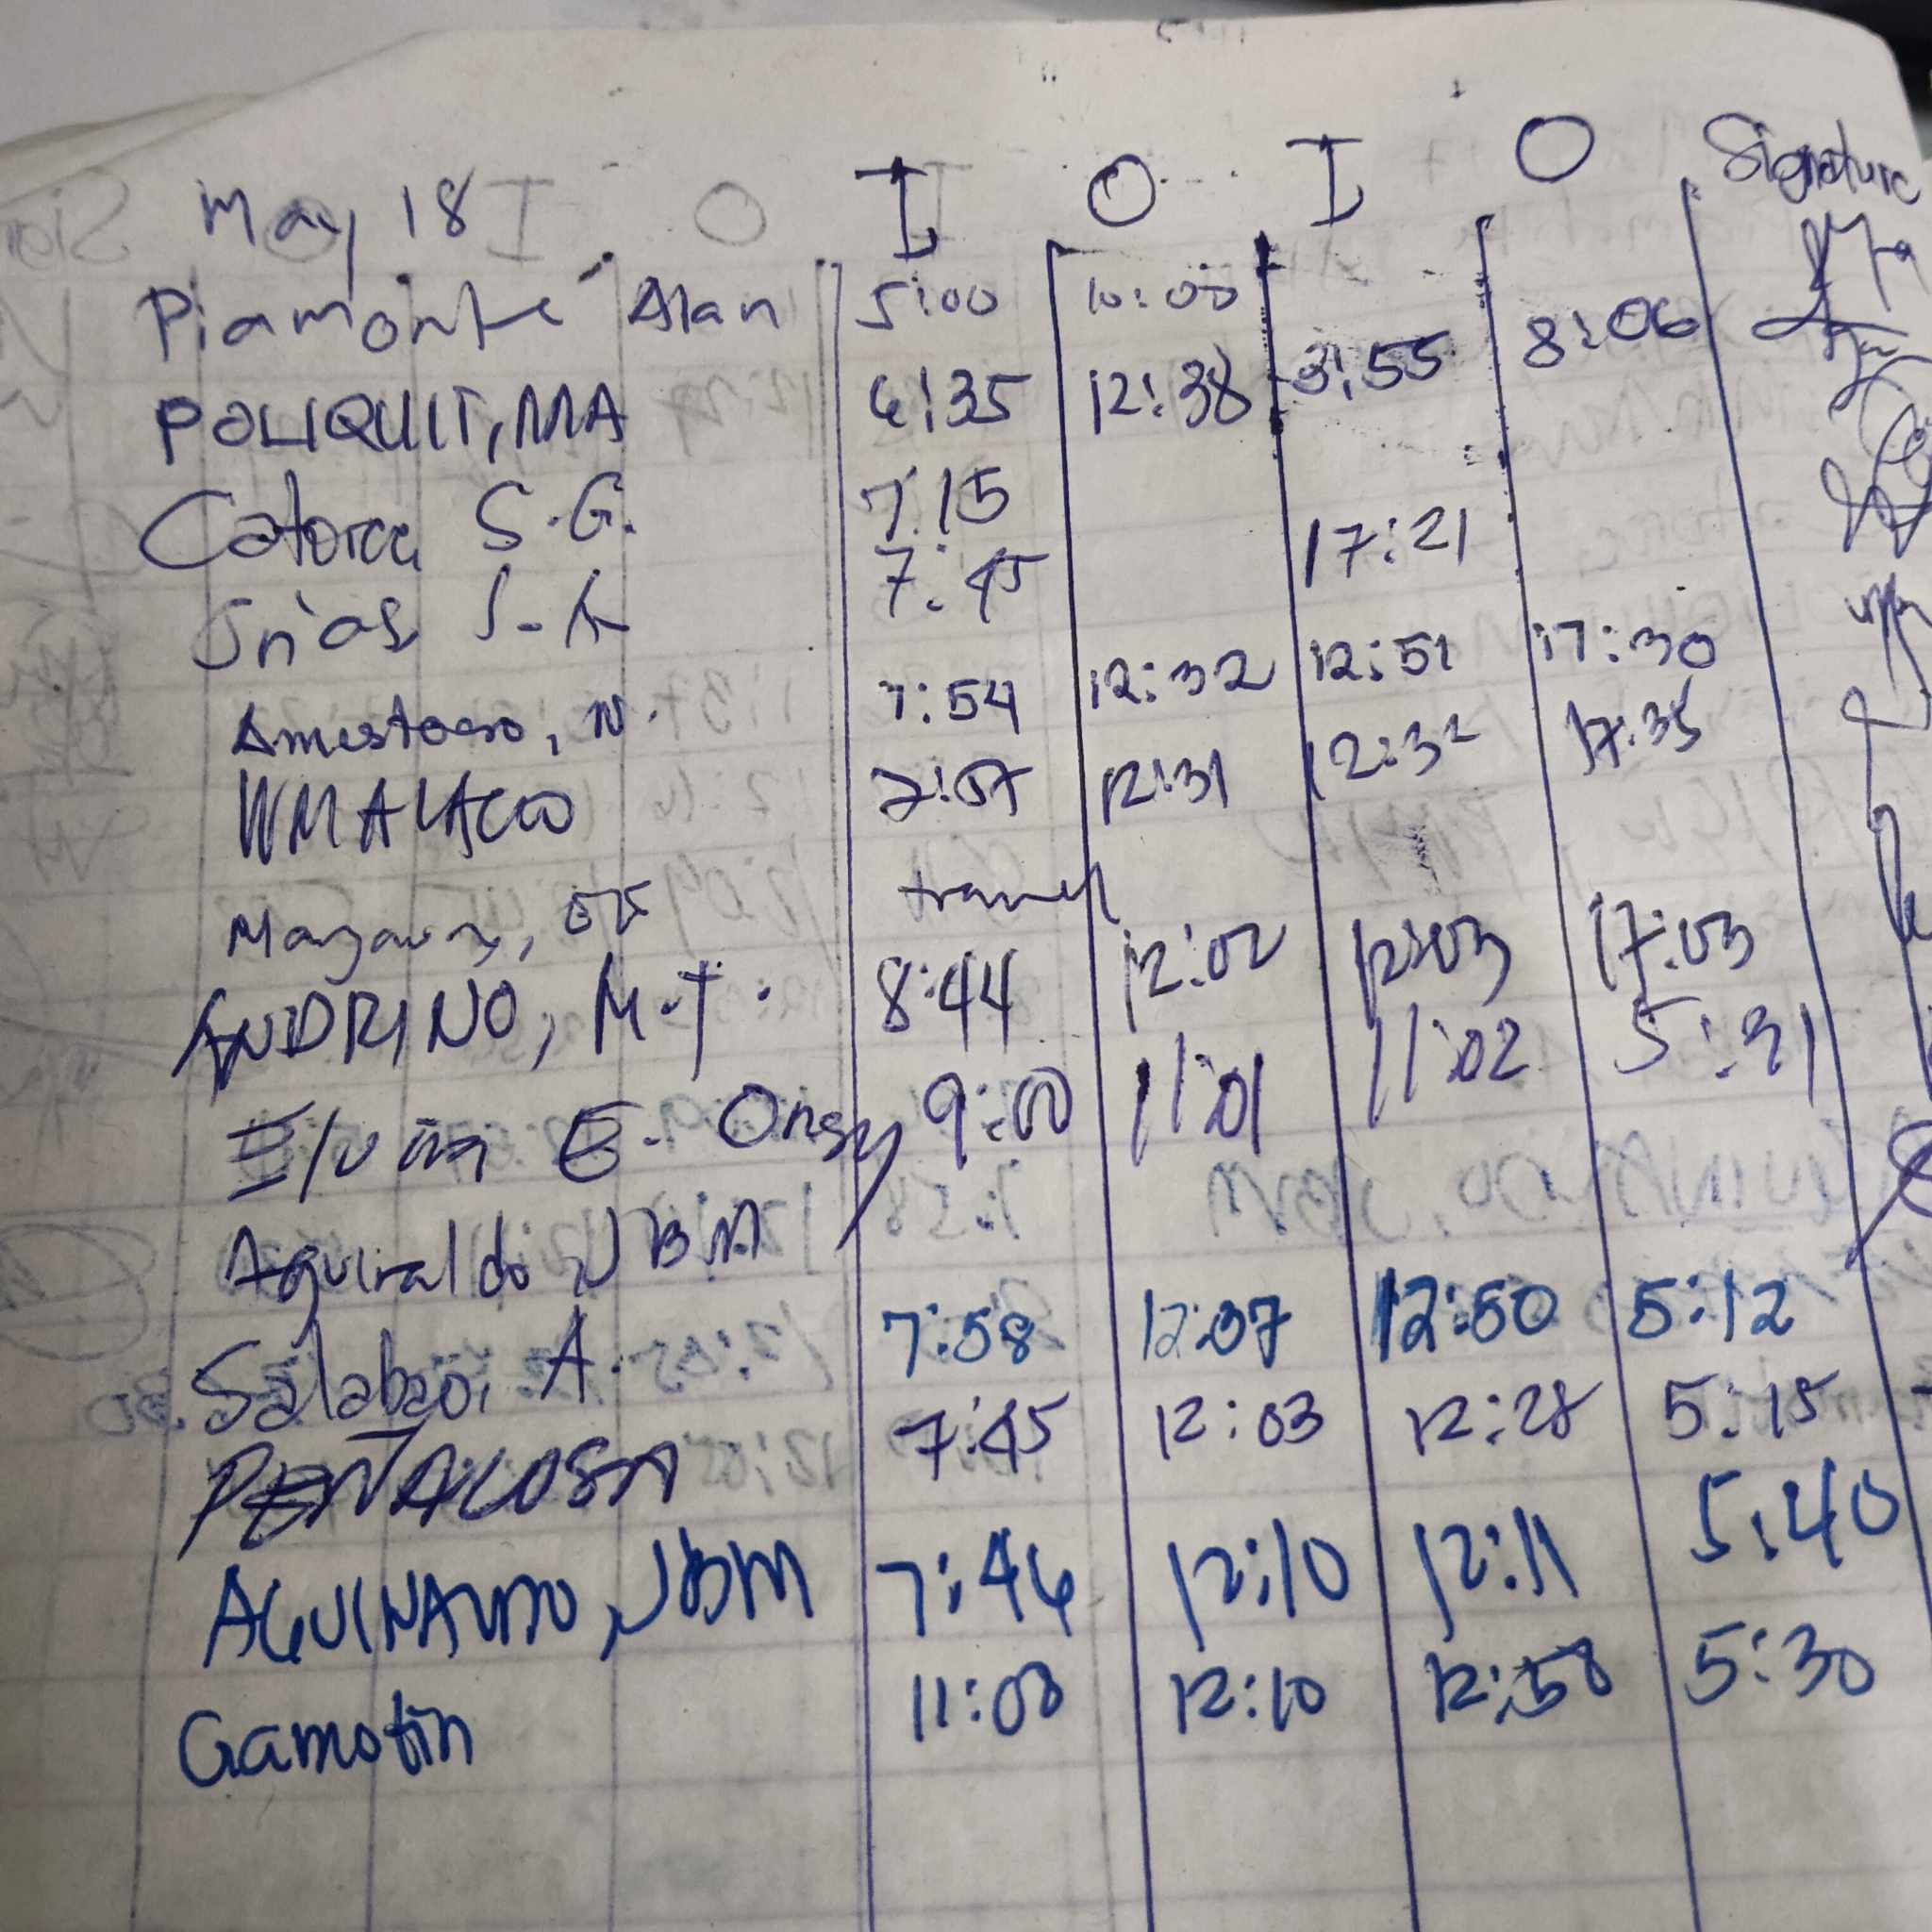 May 18 I O I O Signature
Piamonte Alan 5:00 10:00
POLIQUIT, MA 6:35 12:38 3:55 8:06
Catorce S.G. 7:15
J-A 7:45 17:21
Amestoso, N. 7:54 12:32 12:51 17:30
WMALACO 7:57 12:31 12:32 17:35
travel
ANDRINO, M.T. 8:44 12:02 12:03 17:03
Elvin E. Ongy 9:00 11:01 11:02 5:31
Aguinaldo JBM
Salabao, A. 7:58 12:07 12:50 5:12
PEÑALOSA 7:45 12:03 12:28 5:15
AGUINALDO, JBM 7:46 12:10 12:11 5:40
Gamotin 11:00 12:10 12:58 5:30